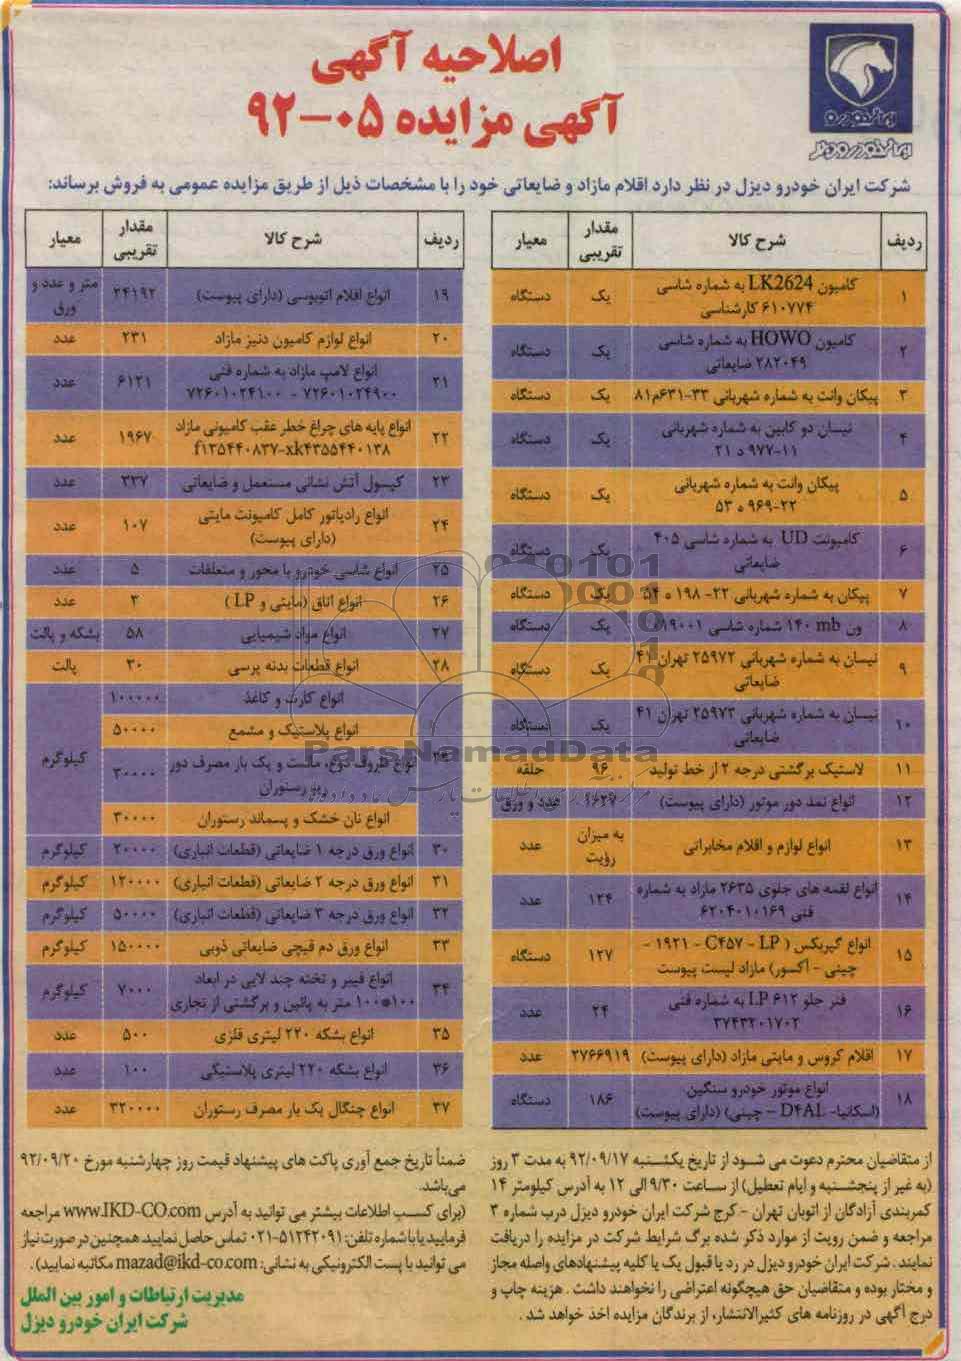 اصلاحیه آگهی
آگهی مزایده ۰۵-۹۲
ایران‌خودرو
ایران‌خودرو دیزل
شرکت ایران خودرو دیزل در نظر دارد اقلام مازاد و ضایعاتی خود را با مشخصات ذیل از طریق مزایده عمومی به فروش برساند:
ردیف شرح کالا مقدار تقریبی معیار
۱ کامیون LK2624 به شماره شاسی ۶۱۰۷۷۴ کارشناسی یک دستگاه
۲ کامیون HOWO به شماره شاسی ۲۸۲۰۴۹ ضایعاتی یک دستگاه
۳ پیکان وانت به شماره شهربانی ۳۳-۶۳۱م۸۱ یک دستگاه
۴ نیسان دو کابین به شماره شهربانی ۱۱-۹۷۷ د ۲۱ یک دستگاه
۵ پیکان وانت به شماره شهربانی ۲۲-۹۶۹ ه ۵۳ یک دستگاه
۶ کامیونت UD به شماره شاسی ۴۰۵ ضایعاتی یک دستگاه
۷ پیکان به شماره شهربانی ۲۲- ۱۹۸ ه ۵۴ یک دستگاه
۸ ون ۱۴۰ mb شماره شاسی یک دستگاه
۹ نیسان به شماره شهربانی ۲۵۹۷۲ تهران ۴۱ ضایعاتی یک دستگاه
۱۰ نیسان به شماره شهربانی ۲۵۹۷۳ تهران ۴۱ ضایعاتی یک دستگاه
۱۱ لاستیک برگشتی درجه ۲ از خط تولید ۹۶ حلقه
۱۲ انواع نمد دور موتور (دارای پیوست) عدد و ورق
۱۳ انواع لوازم و اقلام مخابراتی به میزان رؤیت عدد
۱۴ انواع لقمه های جلوی ۲۶۳۵ مازاد به شماره فنی ۶۲۰۴۰۱۰۱۶۹ ۱۲۴ عدد
۱۵ انواع گیربکس ( C۴۵۷ - LP - ۱۹۲۱ - چینی - آکسور) مازاد لیست پیوست ۱۲۷ دستگاه
۱۶ فنر جلو LP ۶۱۲ به شماره فنی ۳۷۴۳۲۰۱۷۰۲ ۲۴ عدد
۱۷ اقلام کروس و مایتی مازاد (دارای پیوست) ۲۷۶۶۹۱۹ عدد
۱۸ انواع موتور خودرو سنگین (اسکانیا- D۴AL - چینی) (دارای پیوست) ۱۸۶ دستگاه
ردیف شرح کالا مقدار تقریبی معیار
۱۹ انواع اقلام اتوبوسی (دارای پیوست) ۲۴۱۹۲ متر و عدد و ورق
۲۰ انواع لوازم کامیون دنیز مازاد ۲۳۱ عدد
۲۱ انواع لامپ مازاد به شماره فنی ۷۲۶۰۱۰۲۴۹۰۰ - ۷۲۶۰۱۰۲۴۱۰۰ ۶۱۲۱ عدد
۲۲ انواع پایه های چراغ خطر عقب کامیونی مازاد f۱۳۵۴۴۰۸۳۷-xk۴۳۵۵۴۴۰۱۳۸ ۱۹۶۷ عدد
۲۳ کپسول آتش نشانی مستعمل و ضایعاتی ۳۳۷ عدد
۲۴ انواع رادیاتور کامل کامیونت مایتی (دارای پیوست) ۱۰۷ عدد
۲۵ انواع شاسی خودرو با محور و متعلقات ۵ عدد
۲۶ انواع اتاق (مایتی و LP ) ۳ عدد
۲۷ انواع مواد شیمیایی ۵۸ بشکه و پالت
۲۸ انواع قطعات بدنه پرسی ۳۰ پالت
انواع کارت و کاغذ ۱۰۰۰۰۰ کیلوگرم
انواع پلاستیک و مشمع ۵۰۰۰۰
انواع ظروف دوغ، ماست و یک بار مصرف دور ریز رستوران ۳۰۰۰۰
انواع نان خشک و پسماند رستوران ۳۰۰۰۰
۳۰ انواع ورق درجه ۱ ضایعاتی (قطعات انباری) ۲۰۰۰۰ کیلوگرم
۳۱ انواع ورق درجه ۲ ضایعاتی (قطعات انباری) ۱۲۰۰۰۰ کیلوگرم
۳۲ انواع ورق درجه ۳ ضایعاتی (قطعات انباری) ۵۰۰۰۰ کیلوگرم
۳۳ انواع ورق دم قیچی ضایعاتی ذوبی ۱۵۰۰۰۰ کیلوگرم
۳۴ انواع فیبر و تخته چند لایی در ابعاد ۱۰۰*۱۰۰ متر به پائین و برگشتی از نجاری ۷۰۰۰ کیلوگرم
۳۵ انواع بشکه ۲۲۰ لیتری فلزی ۵۰۰ عدد
۳۶ انواع بشکه ۲۲۰ لیتری پلاستیکی ۱۰۰ عدد
۳۷ انواع چنگال یک بار مصرف رستوران ۳۲۰۰۰۰ عدد
ParsNamadData
از متقاضیان محترم دعوت می شود از تاریخ یکشنبه ۹۲/۰۹/۱۷ به مدت ۳ روز
(به غیر از پنجشنبه و ایام تعطیل) از ساعت ۹/۳۰ الی ۱۲ به آدرس کیلومتر ۱۴
کمربندی آزادگان از اتوبان تهران - کرج شرکت ایران خودرو دیزل درب شماره ۳
مراجعه و ضمن رویت از موارد ذکر شده برگ شرایط شرکت در مزایده را دریافت
نمایند . شرکت ایران خودرو دیزل در رد یا قبول یک یا کلیه پیشنهادهای واصله مجاز
و مختار بوده و متقاضیان حق هیچگونه اعتراضی را نخواهند داشت . هزینه چاپ و
درج آگهی در روزنامه های کثیرالانتشار، از برندگان مزایده اخذ خواهد شد .
ضمناً تاریخ جمع آوری پاکت های پیشنهاد قیمت روز چهارشنبه مورخ ۹۲/۰۹/۲۰
می‌باشد.
(برای کسب اطلاعات بیشتر می توانید به آدرس www.IKD-CO.com مراجعه
فرمایید یا با شماره تلفن: ۵۱۲۴۲۰۹۱-۰۲۱ تماس حاصل نمایید. همچنین در صورت نیاز
می توانید با پست الکترونیکی به نشانی: mazad@ikd-co.com مکاتبه نمایید) .
مدیریت ارتباطات و امور بین الملل
شرکت ایران خودرو دیزل